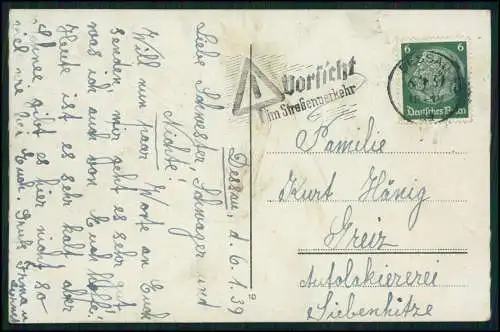 Dessau, d. 6.1.39
Liebe Schwester, Schwager und
Nichte!
Will nun paar Worte an Euch
senden mir geht es sehr gut
was ich auch von Euch hoffe.
Heute ist es sehr kalt aber
Schnee gibt es hier nicht so
viel wie bei Euch. Gruß
Vorsicht
im Straßenverkehr
DESSAU
6 6
Deutsches Reich
Familie
Kurt Hönig
Greiz
Autolakiererei
Siebenhitze